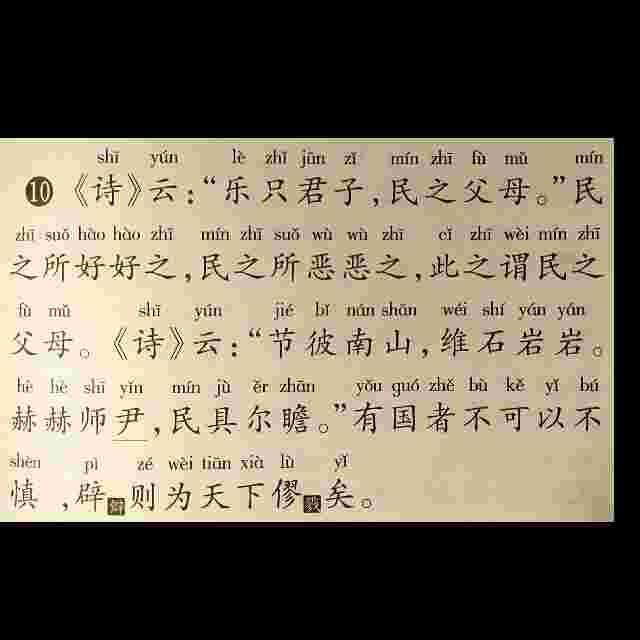 shī yún lè zhǐ jūn zǐ mín zhī fù mǔ mín
⑩《诗》云：“乐只君子，民之父母。”民
zhī suǒ hào hào zhī mín zhī suǒ wù wù zhī cǐ zhī wèi mín zhī
之所好好之，民之所恶恶之，此之谓民之
fù mǔ shī yún jié bǐ nán shān wéi shí yán yán
父母。《诗》云：“节彼南山，维石岩岩。
hè hè shī yǐn mín jù ěr zhān yǒu guó zhě bù kě yǐ bú
赫赫师尹，民具尔瞻。”有国者不可以不
shèn pì zé wèi tiān xià lù yǐ
慎，辟则为天下僇矣。